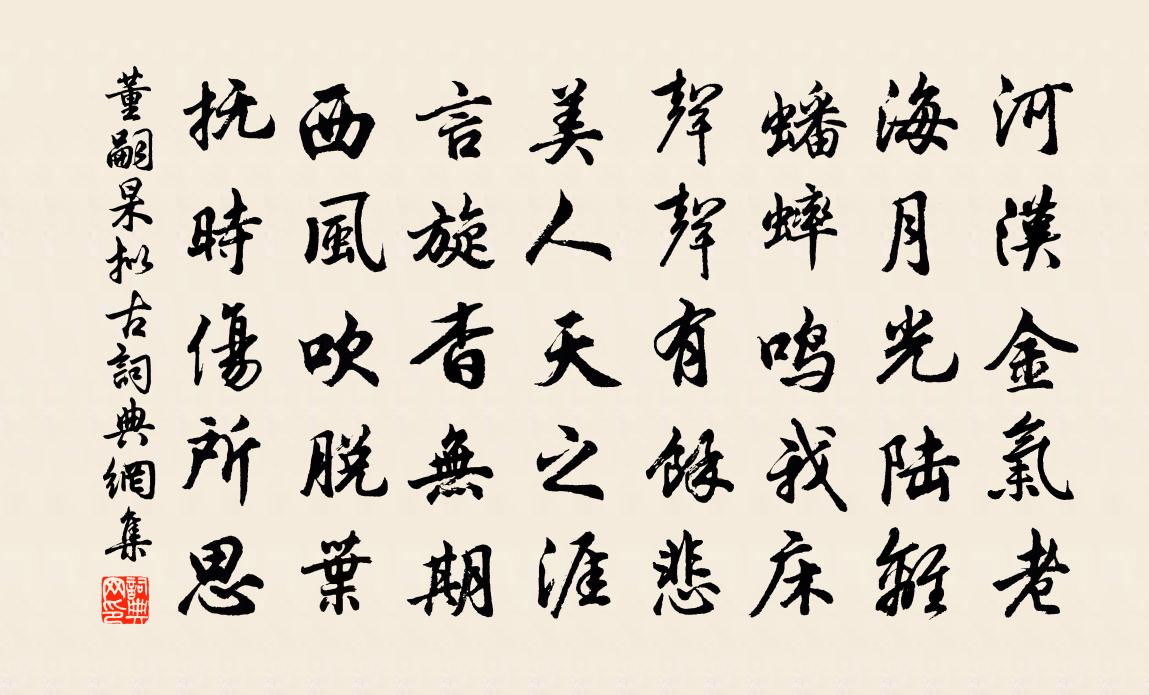 河漢金氣老
海月光陸離
蟠蟀鳴我床
聲聲有餘悲
美人天之涯
言旋杳無期
西風吹脫葉
抚時傷所思
董嗣杲拟古詞典網集
詞典网印